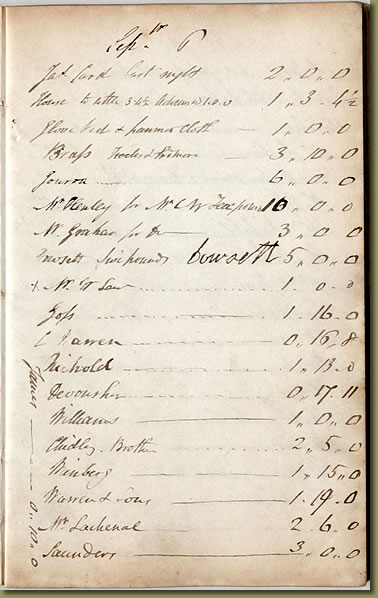 Sepr 6
last night 2 „ 0 „ 0
House to 3 4½ 1.0.0 1 „ 3 . 4½
Glove & hammer cloth 1 „ 0 „ 0
Brass 3 „ 10 „ 0
6 „ 0 „ 0
Mr Henley for Mr C W 10 „ 0 „ 0
Mr Graham for Do 3 „ 0 „ 0
Dowsett five pounds Dowsett 5 „ 0 „ 0
Mr W Law 1 . 0 . 0
Goss 1 . 16 . 0
C Warren 0 „ 16 „ 8
Nichold 1 „ 13 . 0
Devonshire 0 „ 17 . 11
Williams 1 „ 0 „ 0
Chidley Brother 2 „ 5 „ 0
Winberg 1 „ 15 „ 0
Warren & Sons 1 . 19 . 0
Mr Lachenal 2 . 6 . 0
Saunders 3 „ 0 „ 0
James 0 „ 10 „ 0